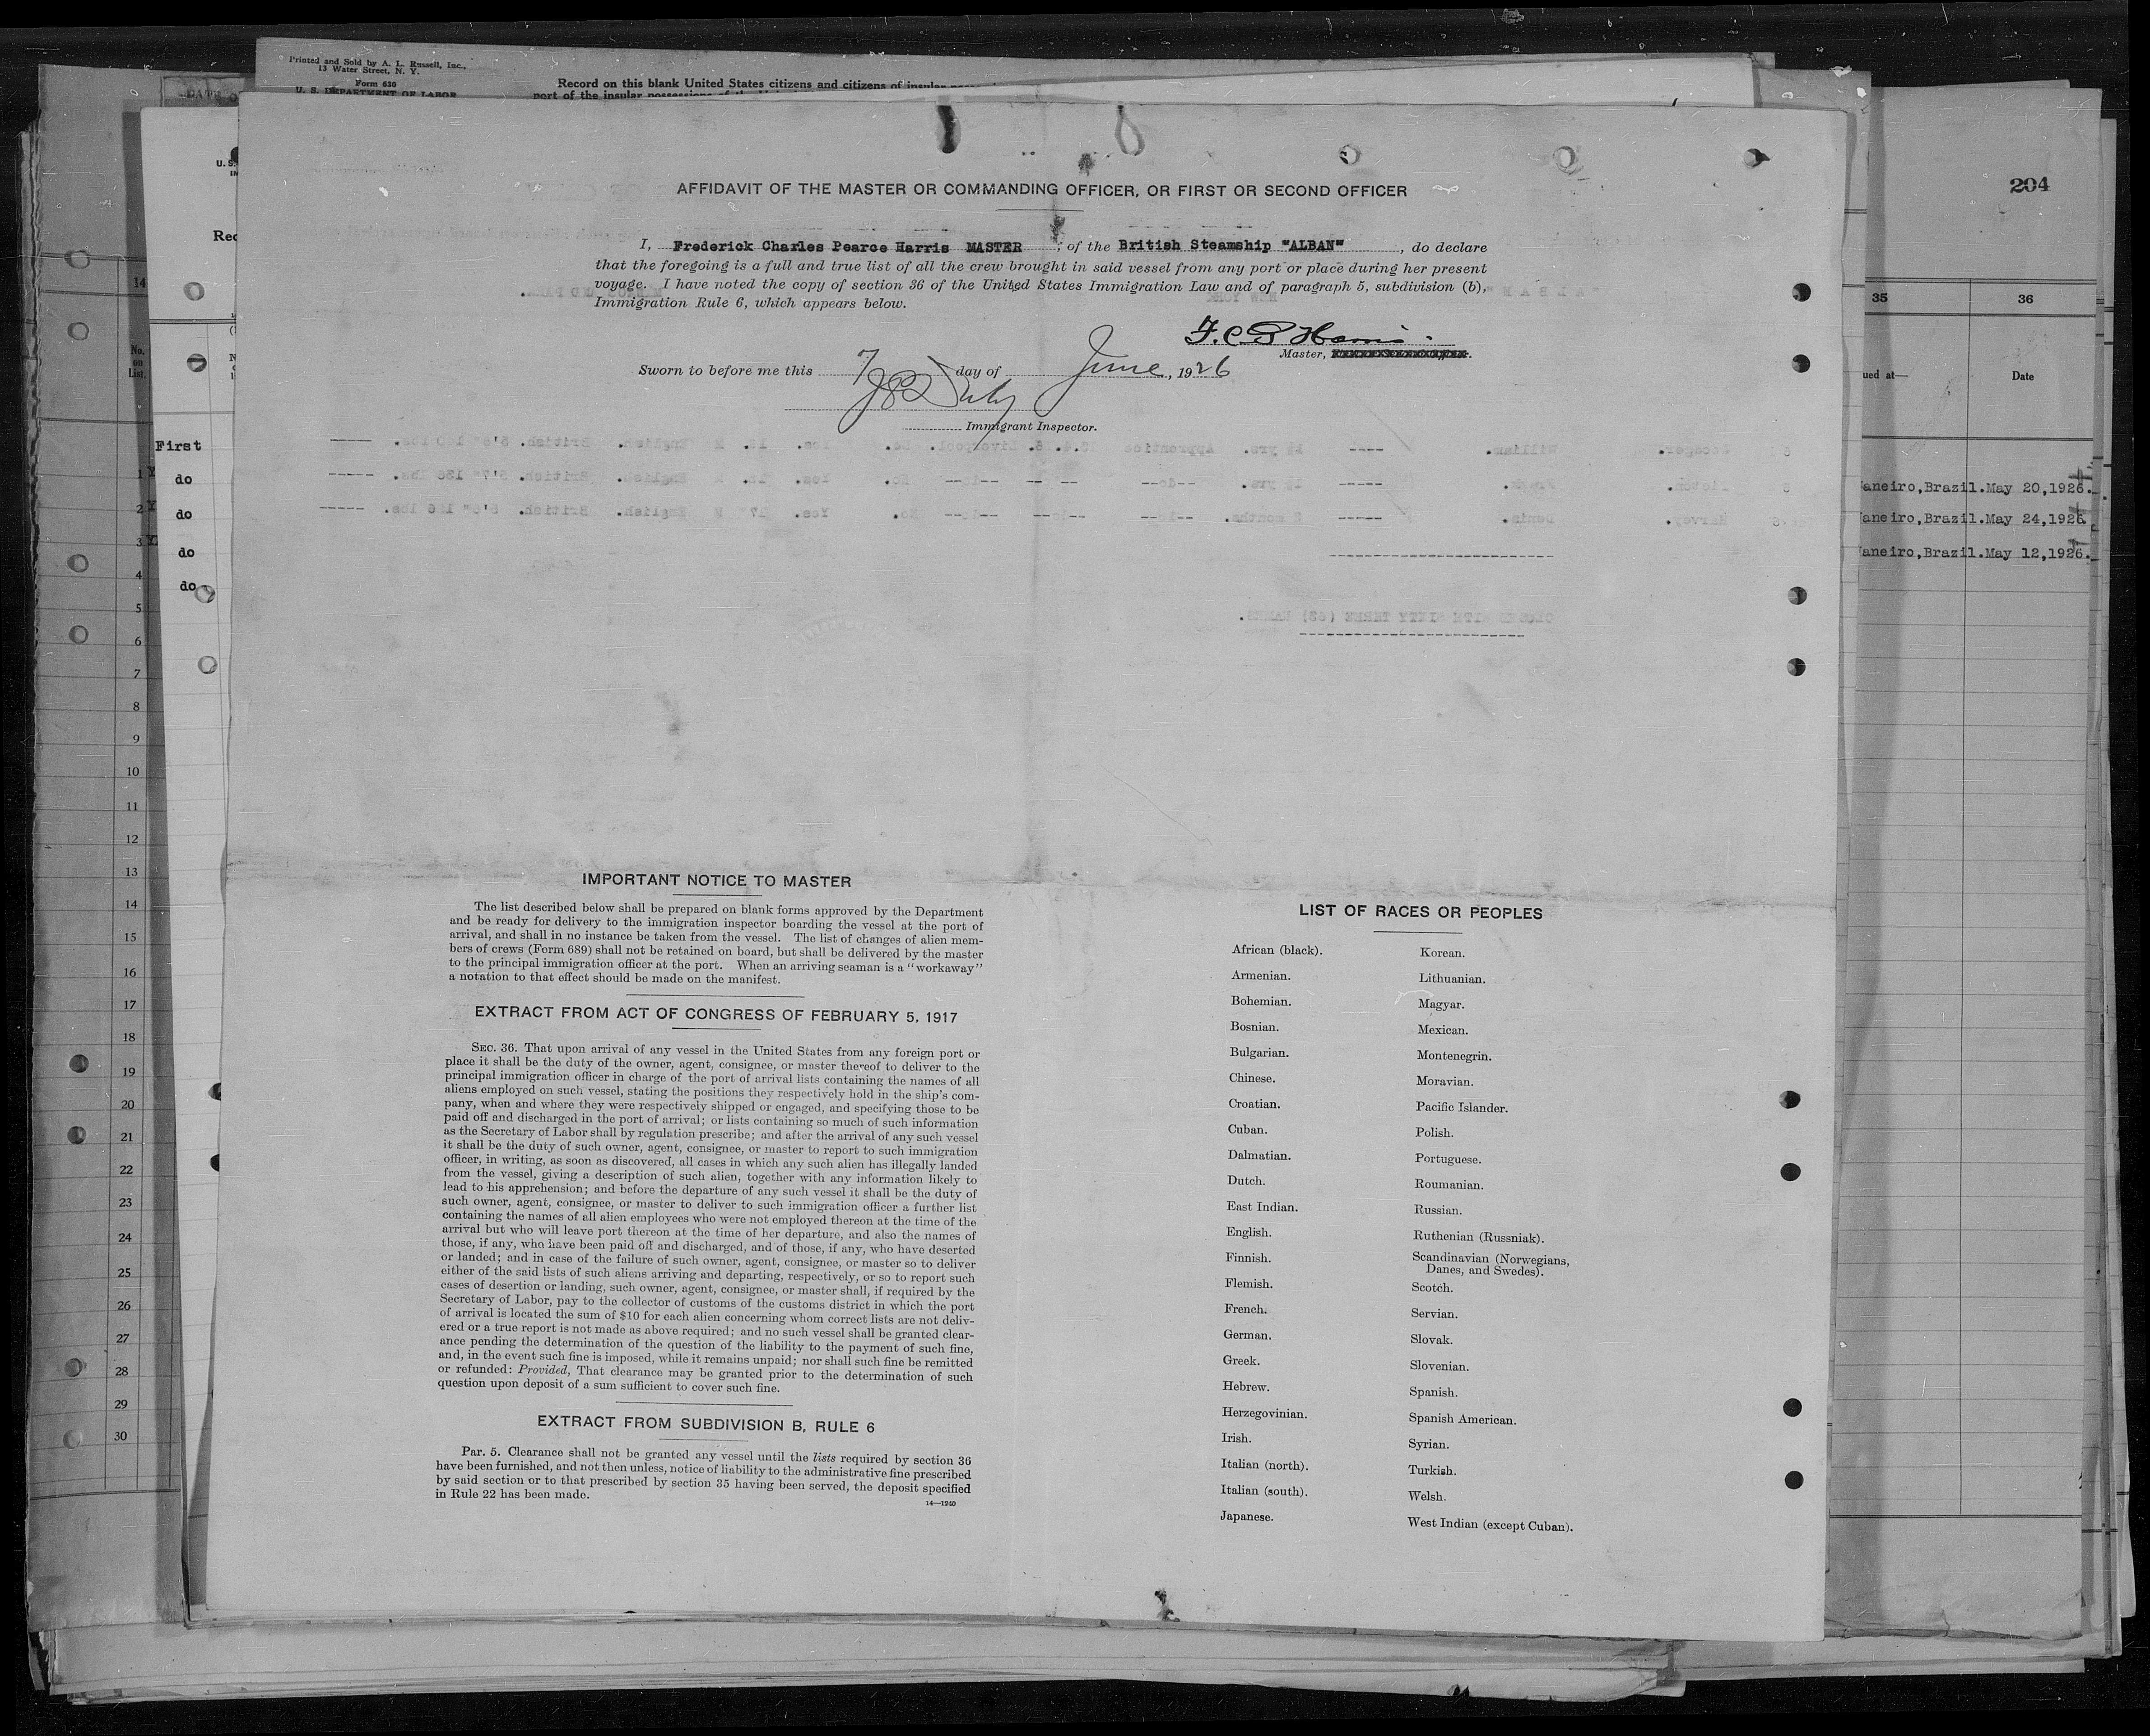 Printed and Sold by A. L. Russell, Inc.,
13 Water Street, N. Y.
Form 630
U. S. DEPARTMENT OF LABOR
Record on this blank United States citizens and citizens of insular
port of the insular possessions of the
204
AFFIDAVIT OF THE MASTER OR COMMANDING OFFICER, OR FIRST OR SECOND OFFICER
I, Frederick Charles Pearce Harris MASTER, of the British Steamship "ALBAN", do declare
that the foregoing is a full and true list of all the crew brought in said vessel from any port or place during her present
voyage. I have noted the copy of section 36 of the United States Immigration Law and of paragraph 5, subdivision (b),
Immigration Rule 6, which appears below.
F. C. P Harris.
Master,
Sworn to before me this 7 day of June, 1926
Immigrant Inspector.
14
No.
on
List.
First
do
do
do
do
1
2
3
4
5
6
7
8
9
10
11
12
13
14
15
16
17
18
19
20
21
22
23
24
25
26
27
28
29
30
35
36
ued at—
Date
aneiro,Brazil.May 20,1926.
aneiro,Brazil.May 24,1926.
aneiro,Brazil.May 12,1926.
IMPORTANT NOTICE TO MASTER
The list described below shall be prepared on blank forms approved by the Department
and be ready for delivery to the immigration inspector boarding the vessel at the port of
arrival, and shall in no instance be taken from the vessel. The list of changes of alien mem-
bers of crews (Form 689) shall not be retained on board, but shall be delivered by the master
to the principal immigration officer at the port. When an arriving seaman is a "workaway"
a notation to that effect should be made on the manifest.
EXTRACT FROM ACT OF CONGRESS OF FEBRUARY 5, 1917
SEC. 36. That upon arrival of any vessel in the United States from any foreign port or
place it shall be the duty of the owner, agent, consignee, or master thereof to deliver to the
principal immigration officer in charge of the port of arrival lists containing the names of all
aliens employed on such vessel, stating the positions they respectively hold in the ship's com-
pany, when and where they were respectively shipped or engaged, and specifying those to be
paid off and discharged in the port of arrival; or lists containing so much of such information
as the Secretary of Labor shall by regulation prescribe; and after the arrival of any such vessel
it shall be the duty of such owner, agent, consignee, or master to report to such immigration
officer, in writing, as soon as discovered, all cases in which any such alien has illegally landed
from the vessel, giving a description of such alien, together with any information likely to
lead to his apprehension; and before the departure of any such vessel it shall be the duty of
such owner, agent, consignee, or master to deliver to such immigration officer a further list
containing the names of all alien employees who were not employed thereon at the time of the
arrival but who will leave port thereon at the time of her departure, and also the names of
those, if any, who have been paid off and discharged, and of those, if any, who have deserted
or landed; and in case of the failure of such owner, agent, consignee, or master so to deliver
either of the said lists of such aliens arriving and departing, respectively, or so to report such
cases of desertion or landing, such owner, agent, consignee, or master shall, if required by the
Secretary of Labor, pay to the collector of customs of the customs district in which the port
of arrival is located the sum of $10 for each alien concerning whom correct lists are not deliv-
ered or a true report is not made as above required; and no such vessel shall be granted clear-
ance pending the determination of the question of the liability to the payment of such fine,
and, in the event such fine is imposed, while it remains unpaid; nor shall such fine be remitted
or refunded: Provided, That clearance may be granted prior to the determination of such
question upon deposit of a sum sufficient to cover such fine.
EXTRACT FROM SUBDIVISION B, RULE 6
Par. 5. Clearance shall not be granted any vessel until the lists required by section 36
have been furnished, and not then unless, notice of liability to the administrative fine prescribed
by said section or to that prescribed by section 35 having been served, the deposit specified
in Rule 22 has been made.
14—1240
LIST OF RACES OR PEOPLES
African (black).
Armenian.
Bohemian.
Bosnian.
Bulgarian.
Chinese.
Croatian.
Cuban.
Dalmatian.
Dutch.
East Indian.
English.
Finnish.
Flemish.
French.
German.
Greek.
Hebrew.
Herzegovinian.
Irish.
Italian (north).
Italian (south).
Japanese.
Korean.
Lithuanian.
Magyar.
Mexican.
Montenegrin.
Moravian.
Pacific Islander.
Polish.
Portuguese.
Roumanian.
Russian.
Ruthenian (Russniak).
Scandinavian (Norwegians,
Danes, and Swedes).
Scotch.
Servian.
Slovak.
Slovenian.
Spanish.
Spanish American.
Syrian.
Turkish.
Welsh.
West Indian (except Cuban).